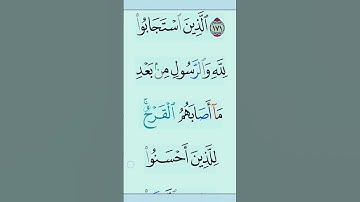 ١٧١ ٱلَّذِينَ ٱسْتَجَابُوا۟
لِلَّهِ وَٱلرَّسُولِ مِنۢ بَعْدِ
مَآ أَصَابَهُمُ ٱلْقَرْحُ ۚ
لِلَّذِينَ أَحْسَنُوا۟